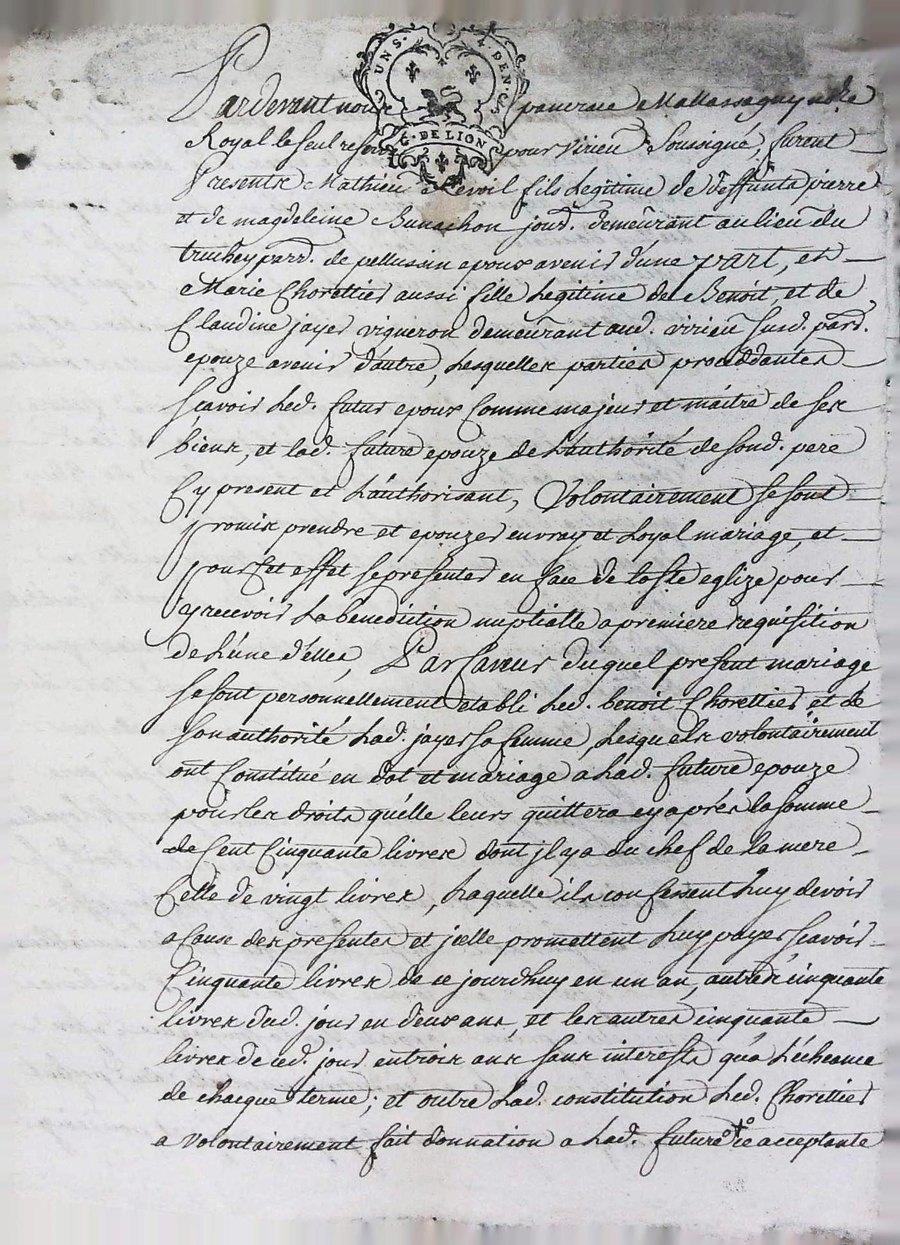 UN S. 4. DEN.
G. DE LION
Pardevant nous pancrace Mallassagny not.e
Royal le seul reservé pour Virieu soussigné, furent
Presents Mathieu Revoil fils legitime de deffunts pierre
et de magdeleine Bunachon jourd. demeurant au lieu du
truchey parr. de pellussin epoux avenir d'une part, et
Marie Chorettier aussi fille legitime de Benoit, et de
Claudine jayer vigneron demeurant aud. virieu susd. parr.
epouze avenir d'autre, lesquelles parties proceddantes
sçavoir led. futur epoux comme majeur et maitre de ses
biens, et lad. future epouze de l'authorité de sond. pere
Cy present et l'authorisant, Volontairement se sont
promis prendre et epouzer en vray et loyal mariage, et
pour cet effet se presenter en face de la s.te eglize pour
y recevoir la benediction nuptialle a premiere requisition
de l'une d'elles, Par faveur duquel present mariage
se sont personnellement etabli led. benoit Chorettier et de
son authorité lad. jayer sa femme, lesquels volontairement
ont Constitué en dot et mariage a lad. future epouze
pour les droits qu'elle leurs quittera cy aprés la somme
de Cent Cinquante livres dont jl y a du chef de la mere
Celle de vingt livres, laquelle ils confessent luy devoir
a cause des presentes et jcelle promettent luy payer sçavoir
Cinquante livres de ce jourdhuy en un an, autres cinquante
livres dud. jour en deux ans, et les autres cinquante
livres de ced. jour en trois ans sans interests qu'a l'écheance
de chacque terme; et outre lad. constitution led. Chorettier
a volontairement fait donnation a lad. future ce acceptante